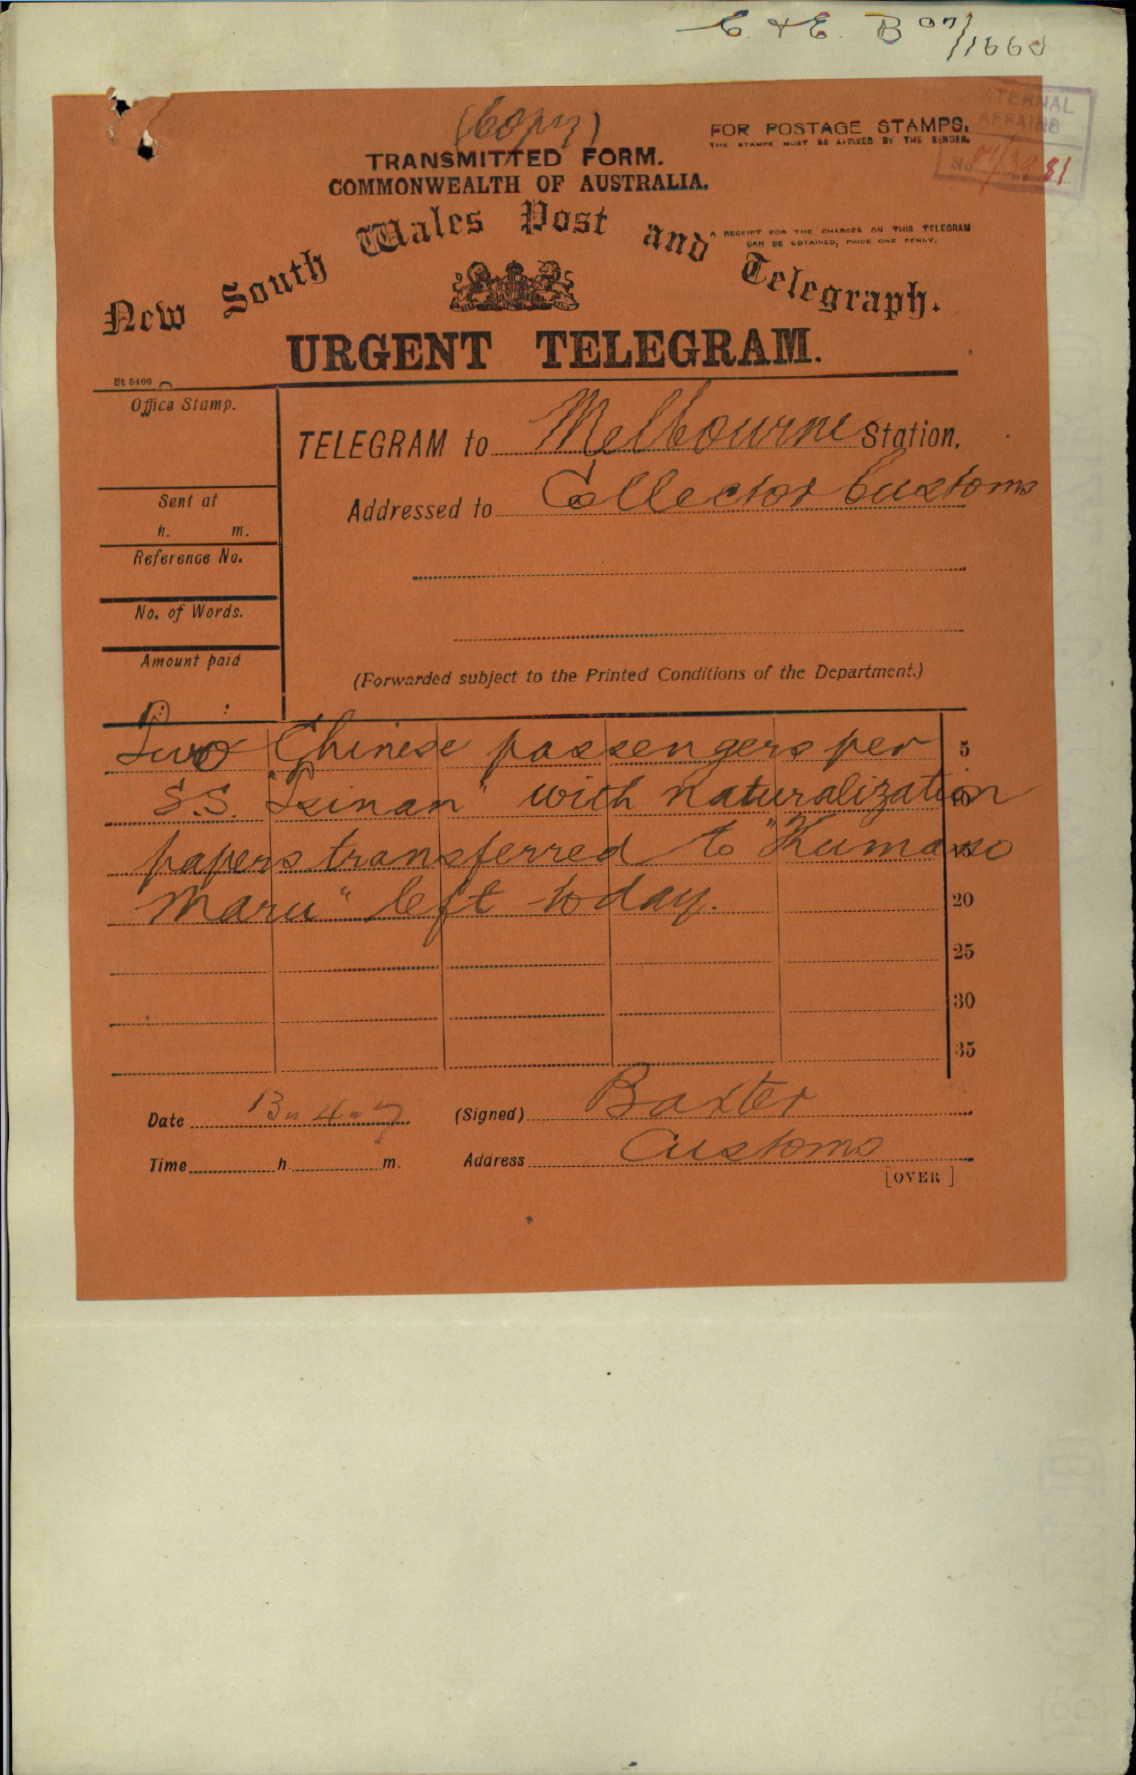 C. & E. B 07/1660
(Copy)
TRANSMITTED FORM.
COMMONWEALTH OF AUSTRALIA.
FOR POSTAGE STAMPS.
THE STAMPS MUST BE AFFIXED BY THE SENDER.
EXTERNAL
AFFAIRS
No
New South Wales Post and Telegraph.
A RECEIPT FOR THE CHARGES ON THIS TELEGRAM
CAN BE OBTAINED, PRICE ONE PENNY.
URGENT TELEGRAM.
Office Stamp.
TELEGRAM to Melbourne Station.
Sent at
h. m.
Addressed to Collector Customs
Reference No.
No. of Words.
Amount paid
: :
(Forwarded subject to the Printed Conditions of the Department.)
Two Chinese passengers per 5
S.S. "Tsinan" with naturalization 10
papers transferred to "Kumano 15
Maru" left today. 20
25
30
35
Date 13.4.7 (Signed) Baxter
Time h. m. Address Customs
[OVER]